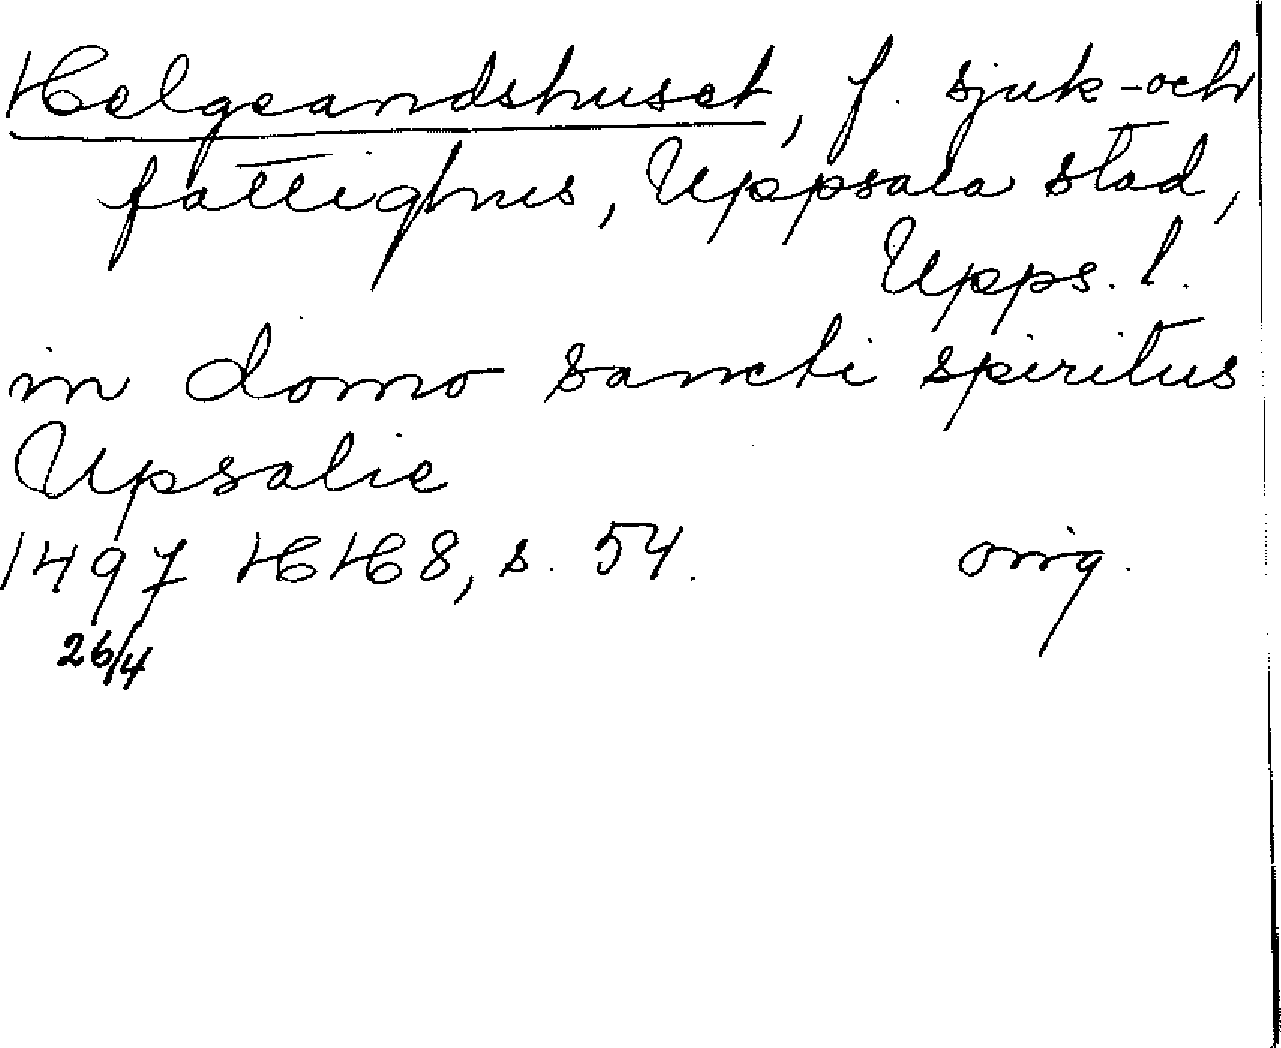 Helgeandshuset, f. sjuk- och
fattighus, Uppsala stad,
Upps. l.
in domo sancti spiritus
Upsalie
1497 HH 8, s. 54. orig.
26/4